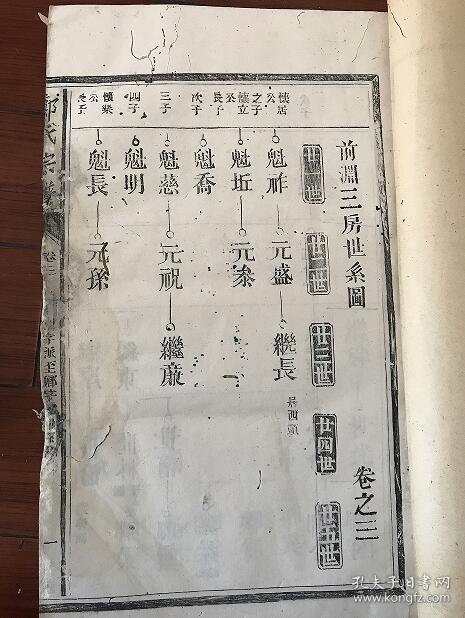 前淵三房世系圖
卷之三
廿一世
廿二世
廿三世
廿四世
廿五世
懷居公之子
魁祚
元盛
繼長
懷立公長子
魁坵
元泰
次子
魁喬
三子
魁慈
元祝
繼廉
四子
魁明
懷樂公長子
魁長
元孫
氏宗譜
一
孔夫子旧书网
www.kongfz.com